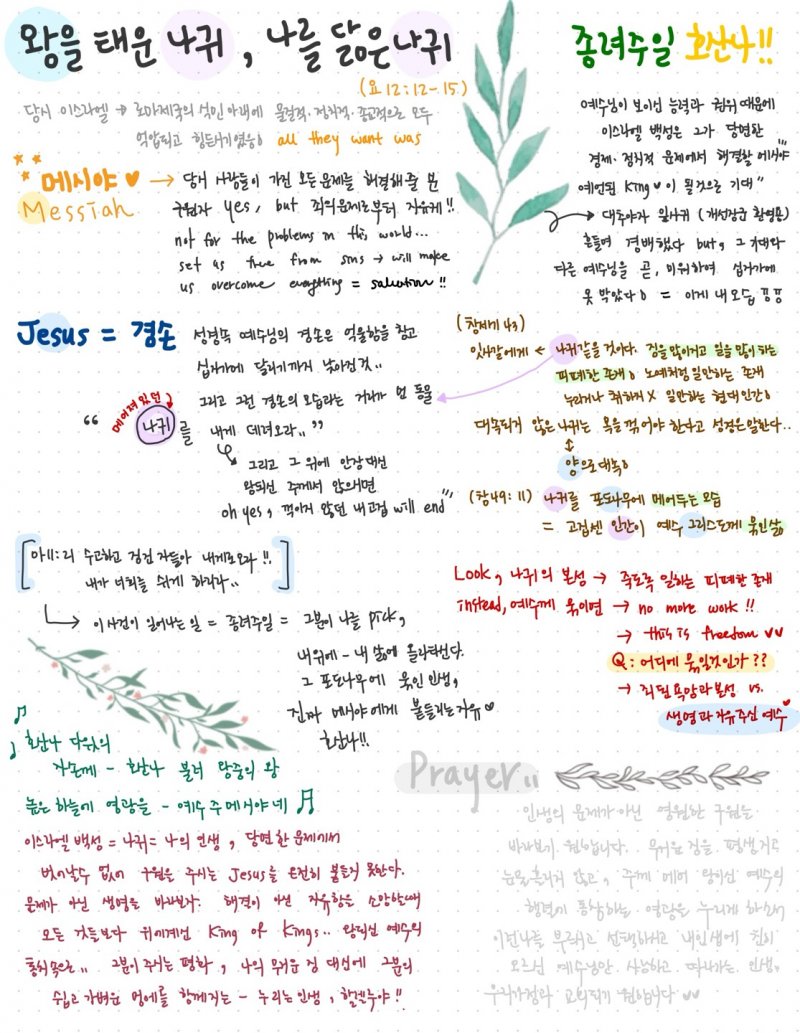 왕을 태운 나귀, 나를 닮은 나귀
(요 12:12-15)
종려주일 호산나!!
당시 이스라엘 → 로마제국의 식민아래에 물질적·정치적·종교적으로 모두
억압되고 힘든시기였음 all they want was
메시야 ♥
Messiah
→ 당시 사람들이 가진 모든문제를 해결해줄 분
구원자 yes, but 죄의문제로부터 자유케!!
not for the problems in this world...
set us free from sins → will make
us overcome everything = salvation!!
예수님이 보이신 능력과 권위 때문에
이스라엘 백성은 그가 당면한
경제·정치적 문제에서 해결할 메시야
예언된 King♥이 될것으로 기대"
→ 대추야자 잎사귀 (개선장군 환영용)
흔들며 경배했다 but, 그 기대와
다른 예수님을 곧, 미워하여 십자가에
못 박았다 = 이게 내모습 끙끙
Jesus = 겸손
성경쪽 예수님의 겸손은 억울함을 참고
십자가에 달리기까지 낮아진 것..
그리고 그런 겸손의 모습과는 거리가 먼 동물
메어져있던
"나귀를 내게 데려오라.."
→ 그리고 그 위에 안장대신
왕되신 주께서 앉으시면
oh yes, 꺾이지 않던 내고집 will end"
(창세기 43)
잇사갈에게 ← 나귀같을 것이다. 짐을 많이지고 일을 많이 하는
피폐한 존재. 노예처럼 일만하는 존재
누리거나 취하지 X 일만하는 현대인간
대속되지 않은 나귀는 목을 꺾어야 한다고 성경은말한다..
↕
양으로대속
(창49:11) 나귀를 포도나무에 메어두는모습
= 고집센 인간이 예수 그리스도께 묶인삶
[마11:28 수고하고 짐진 자들아 내게로오라!!
내가 너희를 쉬게 하리라..]
→ 이 사건이 일어나는 일 = 종려주일 = 그분이 나를 pick,
내위에 - 내 삶에 올라타신다.
그 포도나무에 묶인 인생,
진짜 메시야에게 붙들리는자유♥
호산나!!
Look, 나귀의 본성 → 죽도록 일하는 피폐한 존재
instead, 예수께 묶이면 → no more work!!
→ this is freedom ♥♥
Q: 어디에 묶일것인가??
→ 죄된욕망과본성 vs.
생명과 자유주신 예수♥
♫ 호산나 다윗의
자손께 - 호산나 불러 왕중의 왕
높은 하늘에 영광을 - 예수 주 메시야네 ♫
이스라엘 백성 = 나귀 = 나의 인생, 당면한 문제에서
벗어날수 없어 구원을 주시는 Jesus를 온전히 붙들지 못한다.
문제가 아닌 생명을 바라보자. 해결이 아닌 자유함을 소망할때
모든 것들보다 위에계신 King of Kings.. 왕되신 예수의
통치속으로.. 그분이 주시는 평화, 나의 무거운 짐 대신에 그분의
쉽고 가벼운 멍에를 함께지는 - 누리는인생, 할렐루야!!
Prayer..
인생의 문제가 아닌 영원한 구원을
바라보기 원합니다. 무거운 짐을 평생지고
눈물흘리지 않고, 주께 메어 왕이신 예수의
행렬에 동참하는 영광을 누리게 하소서
이런나를 부르시고 선택하시고 내인생에 친히
오르신 예수님만 사랑하고 따라가는 인생,
우리가정과 교회되기 원합니다 ♥♥